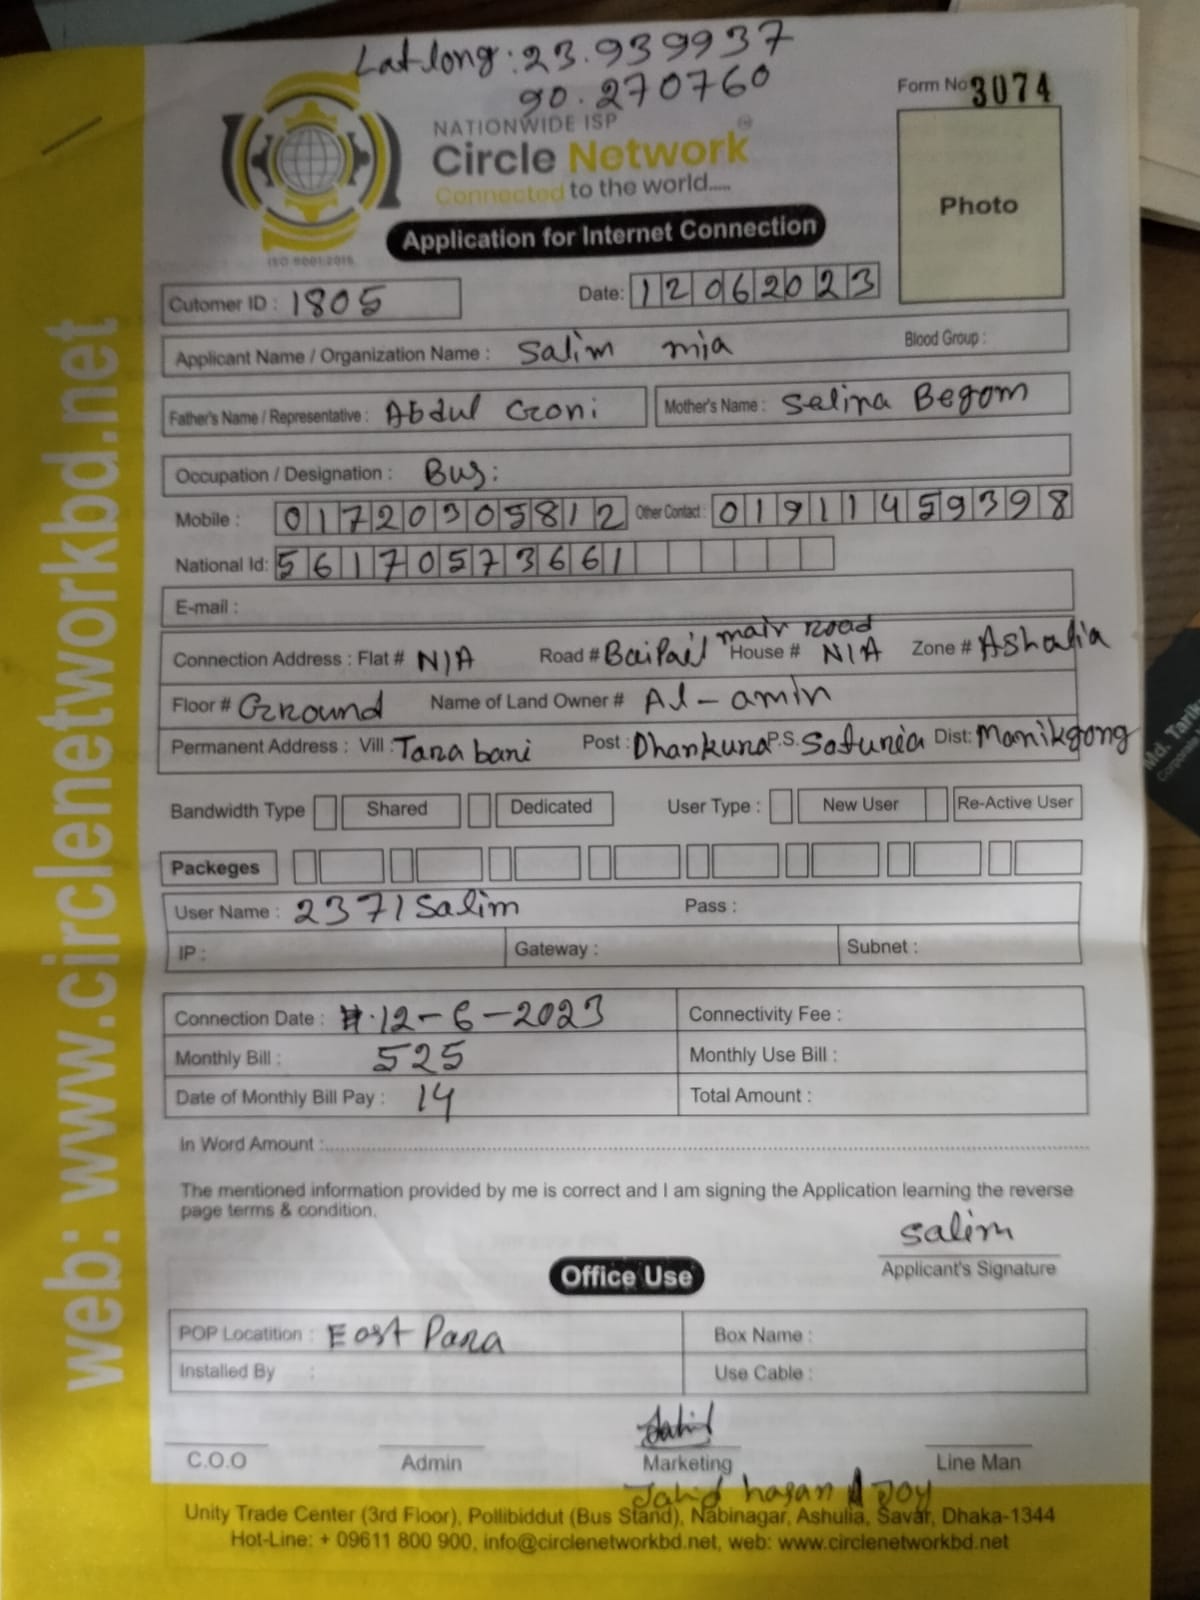 Lat long: 23.939937
90.270760
Form No 3074
NATIONWIDE ISP
Circle Network
Connected to the world.....
ISO 9001:2015
Photo
Application for Internet Connection
Cutomer ID : 1805
Date: 12062023
Applicant Name / Organization Name : Salim mia Blood Group :
Father's Name / Representative : Abdul Goni Mother's Name : Selina Begom
Occupation / Designation : Bus:
Mobile : 01720305812 Other Contact : 01911459398
National Id: 56170573661
E-mail :
Connection Address : Flat # N/A Road # Baipail main road House # N/A Zone # Ashalia
Floor # Ground Name of Land Owner # Al-amin
Permanent Address : Vill : Tarabani Post : Dhankura P.S. Saturia Dist: Manikgong
Bandwidth Type Shared Dedicated User Type : New User Re-Active User
Packeges
User Name : 2371Salim Pass :
IP : Gateway : Subnet :
Connection Date : 12-6-2023 Connectivity Fee :
Monthly Bill : 525 Monthly Use Bill :
Date of Monthly Bill Pay : 14 Total Amount :
In Word Amount :
The mentioned information provided by me is correct and I am signing the Application learning the reverse
page terms & condition.
Salim
Applicant's Signature
Office Use
POP Locatition : East Para Box Name :
Installed By : Use Cable :
Jahid
C.O.O Admin Marketing Line Man
Jahid hasan Joy
Unity Trade Center (3rd Floor), Pollibiddut (Bus Stand), Nabinagar, Ashulia, Savar, Dhaka-1344
Hot-Line: + 09611 800 900, info@circlenetworkbd.net, web: www.circlenetworkbd.net
web: www.circlenetworkbd.net
Md. Tarik